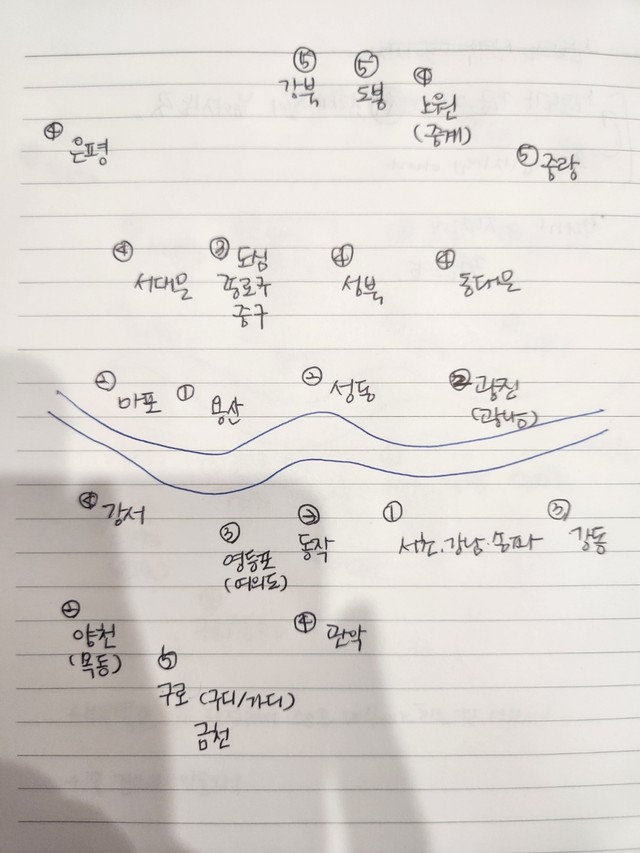 ⑤
강북
⑤
도봉
④
노원
(중계)
④
은평
⑤ 중랑
④
서대문
③ 도심
종로구
중구
④
성북
④
동대문
②
마포
①
용산
②
성동
② 광진
(광나루)
④ 강서
③
영등포
(여의도)
②
동작
①
서초.강남.송파
③
강동
②
양천
(목동)
④
관악
⑤
구로 (구디/가디)
금천